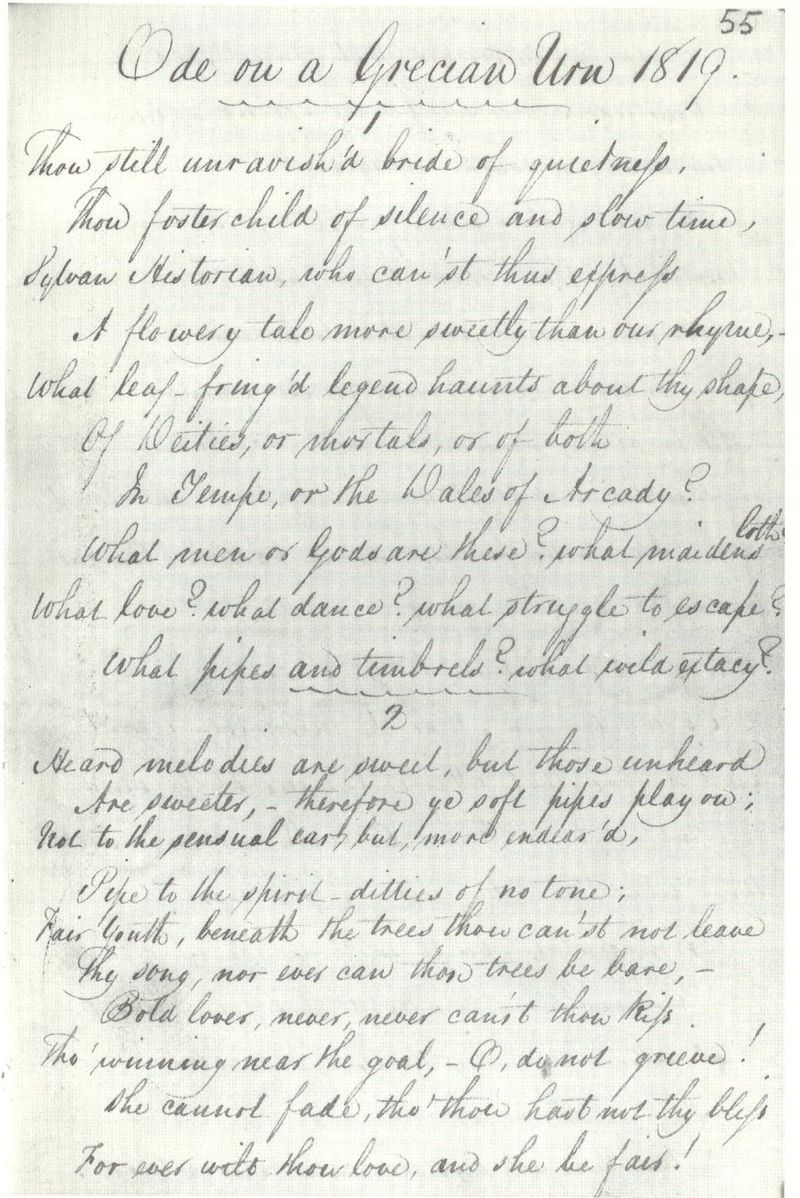 55
Ode on a Grecian Urn 1819.
1
Thou still unravish'd bride of quietneſs,
Thou foster child of silence and slow time,
Sylvan Historian, who can'st thus expreſs
A flowery tale more sweetly than our rhyme,-
What leaf-fring'd legend haunts about thy shape,
Of Deities, or mortals, or of both
In Tempe, or the Dales of Arcady?
What men or Gods are these? what maidens loth?
What love? what dance? what struggle to escape?
What pipes and timbrels? what wild extacy?
2
Heard melodies are sweet, but those unheard
Are sweeter,- therefore ye soft pipes play on;
Not to the sensual ear, but, more endear'd,
Pipe to the spirit-ditties of no tone;
Fair Youth, beneath the trees thou can'st not leave
Thy song, nor ever can those trees be bare,-
Bold lover, never, never can'st thou kiſs
Tho' winning near the goal,- O, do not grieve!
She cannot fade, tho' thou hast not thy bliſs
For ever wilt thou love, and she be fair!